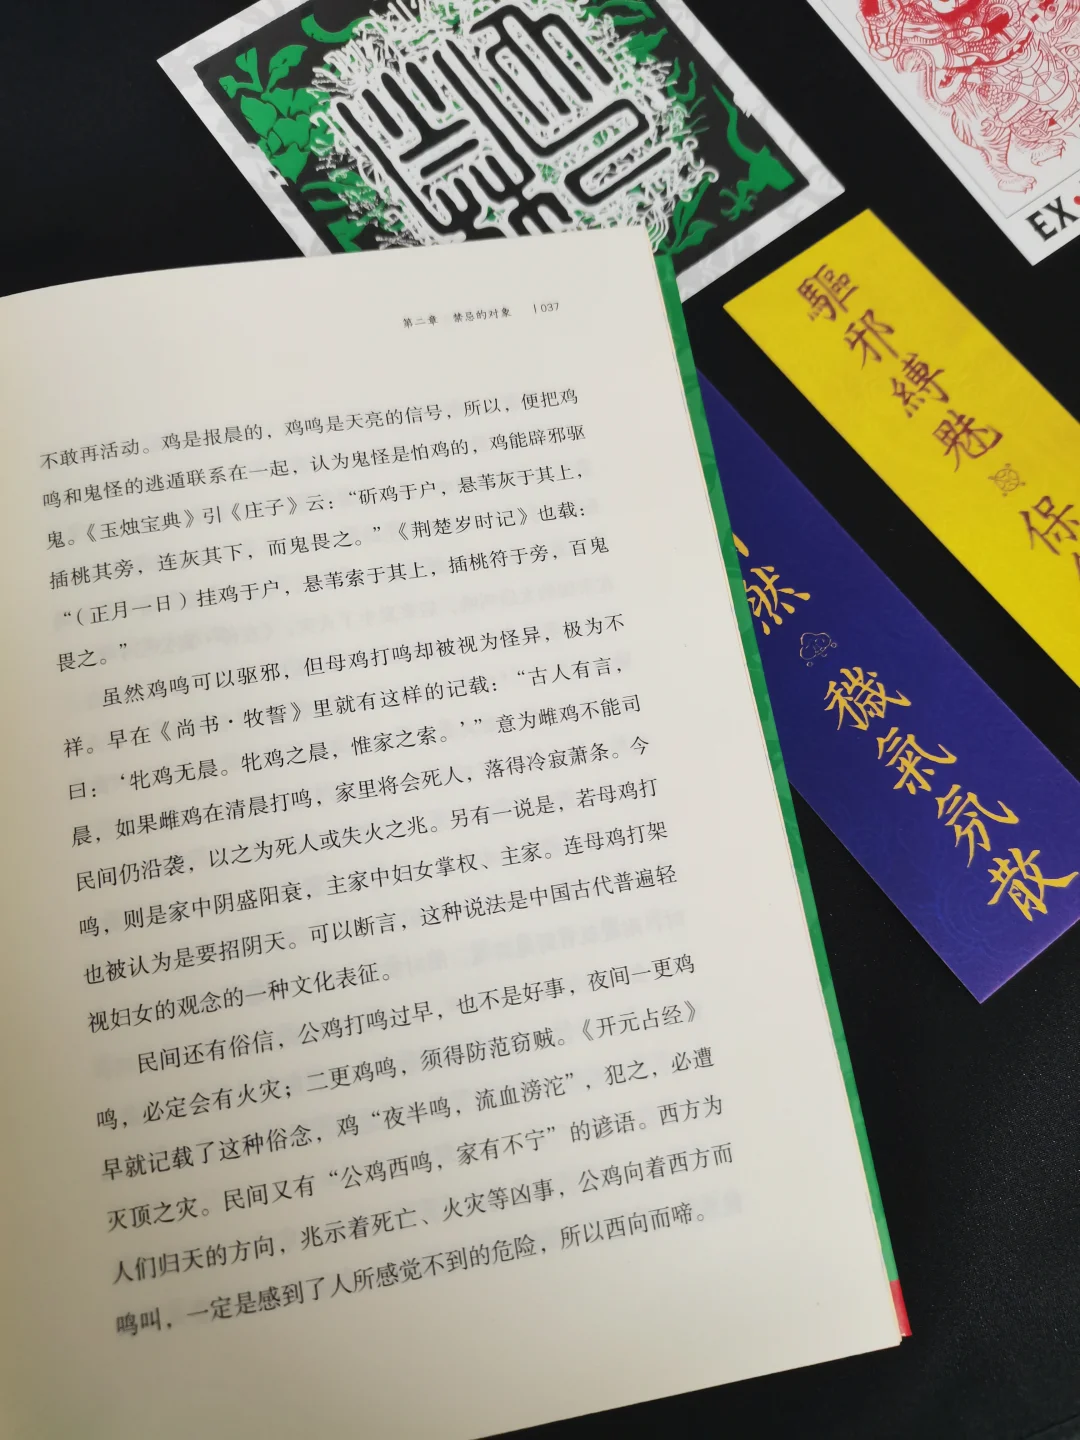 第二章 禁忌的对象 | 037
不敢再活动。鸡是报晨的，鸡鸣是天亮的信号，所以，便把鸡
鸣和鬼怪的逃遁联系在一起，认为鬼怪是怕鸡的，鸡能辟邪驱
鬼。《玉烛宝典》引《庄子》云：“斫鸡于户，悬苇灰于其上，
插桃其旁，连灰其下，而鬼畏之。”《荆楚岁时记》也载：
“（正月一日）挂鸡于户，悬苇索于其上，插桃符于旁，百鬼
畏之。”
虽然鸡鸣可以驱邪，但母鸡打鸣却被视为怪异，极为不
祥。早在《尚书·牧誓》里就有这样的记载：“古人有言，
曰：‘牝鸡无晨。牝鸡之晨，惟家之索。’”意为雌鸡不能司
晨，如果雌鸡在清晨打鸣，家里将会死人，落得冷寂萧条。今
民间仍沿袭，以之为死人或失火之兆。另有一说是，若母鸡打
鸣，则是家中阴盛阳衰，主家中妇女掌权、主家。连母鸡打架
也被认为是要招阴天。可以断言，这种说法是中国古代普遍轻
视妇女的观念的一种文化表征。
民间还有俗信，公鸡打鸣过早，也不是好事，夜间一更鸡
鸣，必定会有火灾；二更鸡鸣，须得防范窃贼。《开元占经》
早就记载了这种俗念，鸡“夜半鸣，流血滂沱”，犯之，必遭
灭顶之灾。民间又有“公鸡西鸣，家有不宁”的谚语。西方为
人们归天的方向，兆示着死亡、火灾等凶事，公鸡向着西方而
鸣叫，一定是感到了人所感觉不到的危险，所以西向而啼。
EX
驅邪縛魅 保
然 穢氣氛散